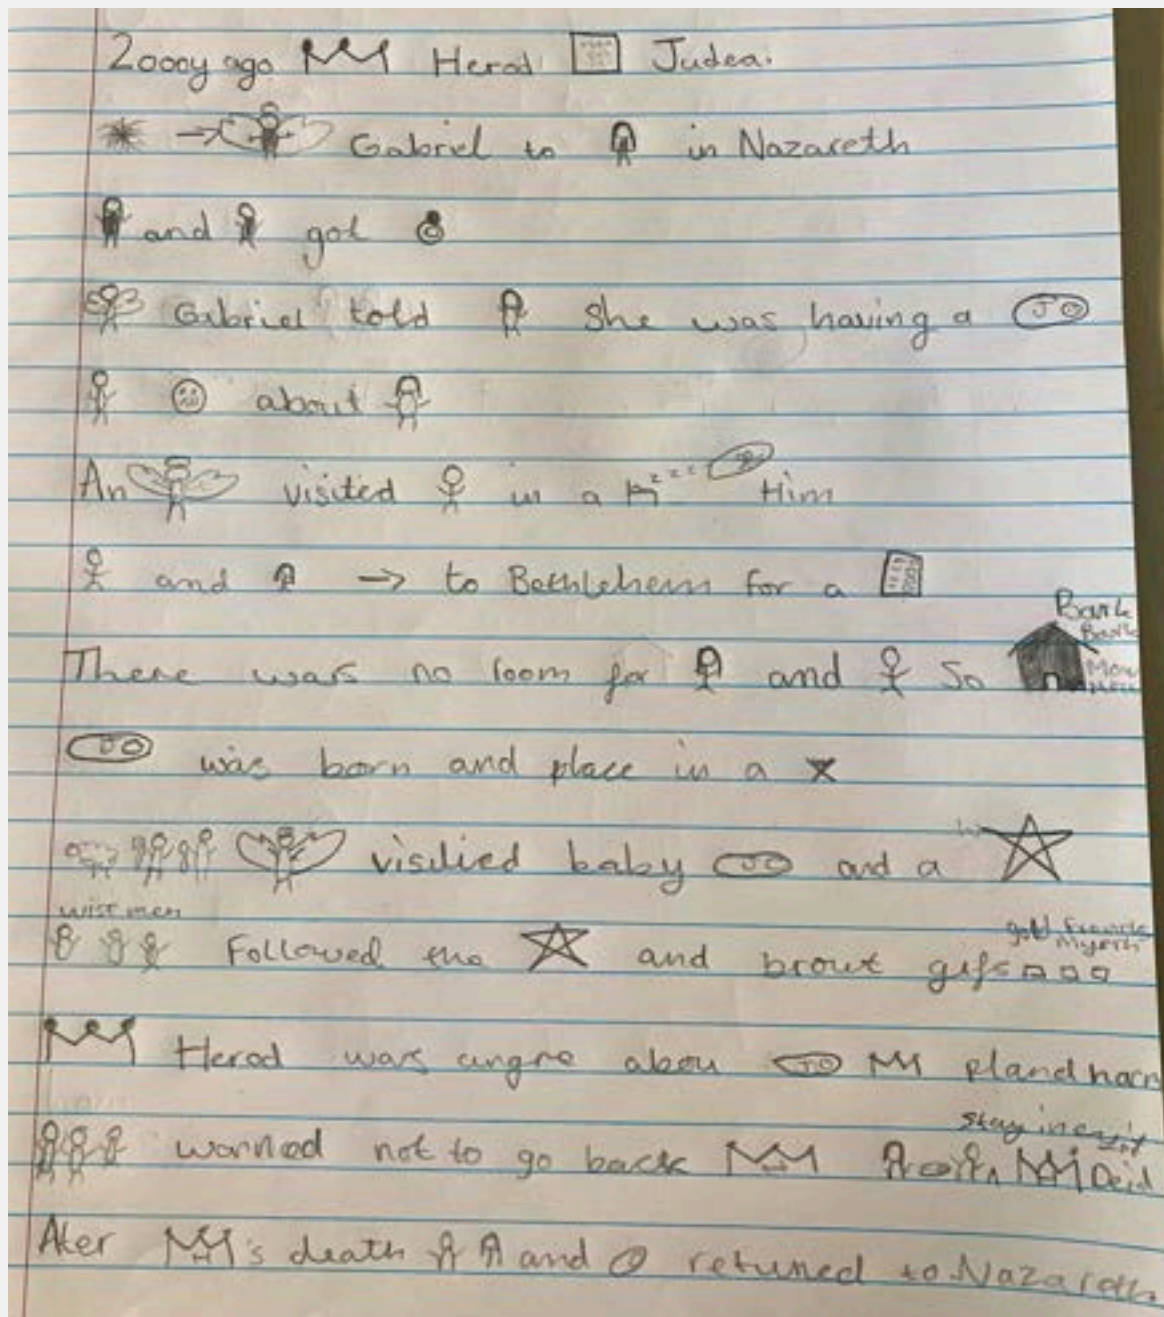 2000y ago Herod Judea.
Gabriel to in Nazareth
and got
Gabriel told she was having a
about
An visited in a zzzz Him
and to Bethlehem for a
Bark
Bark
There was no room for and so
Meow
was born and place in a
visitied baby and a
wise men
gold
Myrrh
Followed the and brout gifs
Herod was angre abou pland harm
stay in
warned not to go back Deid
After 's death and returned to Nazareth